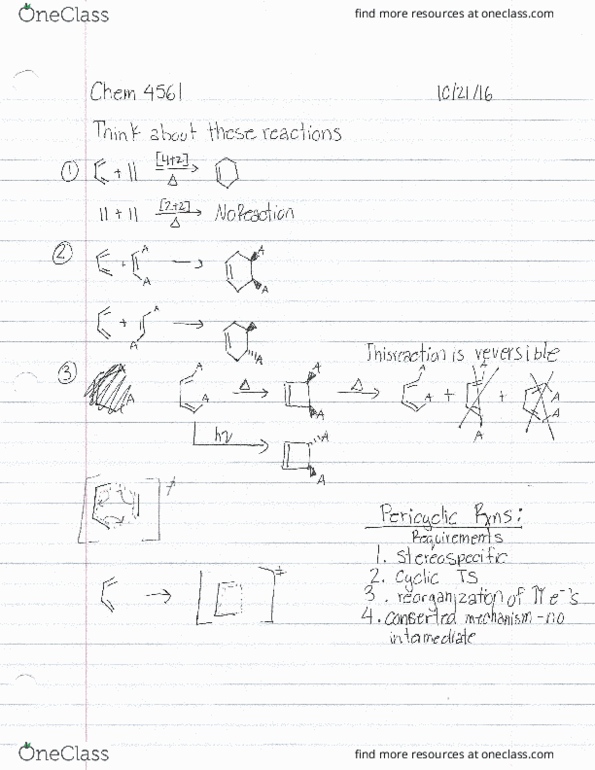 OneClass
find more resources at oneclass.com
Chem 4561
10/21/16
Think about these reactions
1
+ [4+2] Δ
|| + || [2+2] Δ No Reaction
2
+ A A A A
+ A A A A
This reaction is reversible
3
A A A Δ A A Δ A A + A A + A A
hν A A
‡
‡
Pericyclic Rxns:
Requirements
1. Stereospecific
2. Cyclic TS
3. reorganization of π e⁻'s
4. conserted mechanism - no
intemediate
OneClass
find more resources at oneclass.com